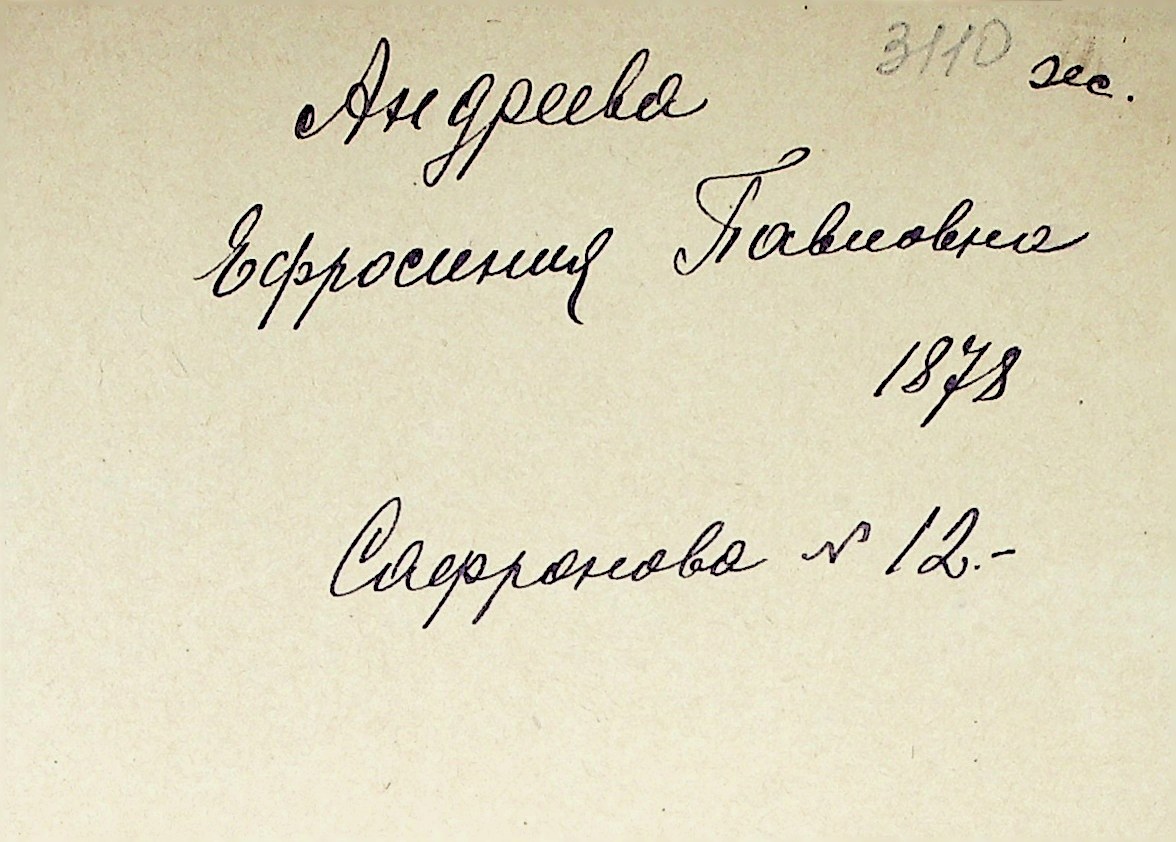 3110 ж.
Андреева
Ефросиния Павловна
1878
Сафронова № 12.-